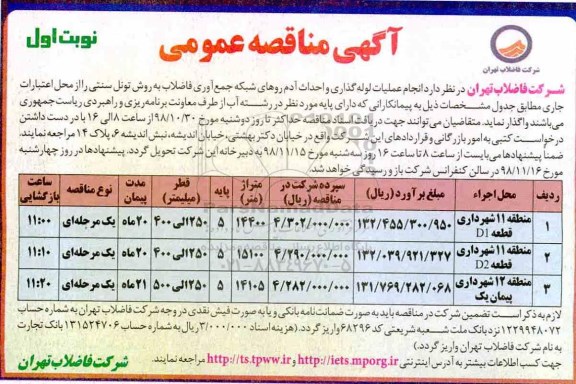 آگهی مناقصه عمومی
نوبت اول
شرکت فاضلاب تهران
شرکت فاضلاب تهران در نظر دارد انجام عملیات لوله گذاری و احداث آدم روهای شبکه جمع آوری فاضلاب به روش تونل سنتی را از محل اعتبارات
جاری مطابق جدول مشخصات ذیل به پیمانکارانی که دارای پایه مورد نظر در رشته آب از طرف معاونت برنامه ریزی و راهبردی ریاست جمهوری
می باشند واگذار نماید. متقاضیان می توانند جهت دریافت اسناد مناقصه حداکثر تا روز دوشنبه مورخ ۹۸/۱۰/۳۰ از ساعت ۸ الی ۱۶ با در دست داشتن
درخواست کتبی به امور بازرگانی و قراردادهای این شرکت واقع در خیابان دکتر بهشتی، خیابان اندیشه، نبش اندیشه ۶ پلاک ۱۴ مراجعه نمایند.
ضمنا پیشنهادها می بایست از ساعت ۸ تا ساعت ۱۶ روز سه شنبه مورخ ۹۸/۱۱/۱۵ به دبیرخانه این شرکت تحویل گردد. پیشنهادها در روز چهارشنبه
مورخ ۹۸/۱۱/۱۶ در سالن کنفرانس شرکت باز و رسیدگی خواهد شد.
ردیف محل اجراء مبلغ برآورد (ریال) سپرده شرکت در مناقصه (ریال) متراژ (متر) پایه قطر (میلیمتر) مدت پیمان نوع مناقصه ساعت بازگشایی
۱ منطقه ۱۱ شهرداری قطعه D1 ۱۳۲/۴۵۵/۳۰۰/۹۵۰ ۴/۳۰۲/۰۰۰/۰۰۰ ۱۴۴۰۰ ۵ ۲۵۰ الی ۴۰۰ ۲۰ ماه یک مرحله ای ۱۱:۰۰
۲ منطقه ۱۱ شهرداری قطعه D2 ۱۳۲/۰۳۹/۹۲۱/۳۲۷ ۴/۲۹۰/۰۰۰/۰۰۰ ۱۵۱۰۰ ۵ ۲۵۰ الی ۴۰۰ ۲۰ ماه یک مرحله ای ۱۱:۱۰
۳ منطقه ۱۲ شهرداری پیمان یک ۱۳۱/۷۶۹/۲۸۲/۰۶۸ ۴/۲۸۲/۰۰۰/۰۰۰ ۱۴۱۰۵ ۵ ۲۵۰ الی ۵۰۰ ۲۱ ماه یک مرحله ای ۱۱:۲۰
لازم به ذکر است تضمین شرکت در مناقصه باید به صورت ضمانت نامه بانکی و یا به صورت فیش نقدی در وجه شرکت فاضلاب تهران به شماره حساب
۱۲۲۹۹۴۸۰۷۲ نزد بانک ملت شعبه شریعتی کد ۶۸۲۹۶ واریز گردد. (هزینه اسناد ۳/۰۰۰/۰۰۰ ریال به شماره حساب ۱۳۱۵۲۴۷۰۶ بانک تجارت
به نام شرکت فاضلاب تهران واریز گردد.)
جهت کسب اطلاعات بیشتر به آدرس اینترنتی http://iets.mporg.ir و http://ts.tpww.ir مراجعه نمایند.
شرکت فاضلاب تهران